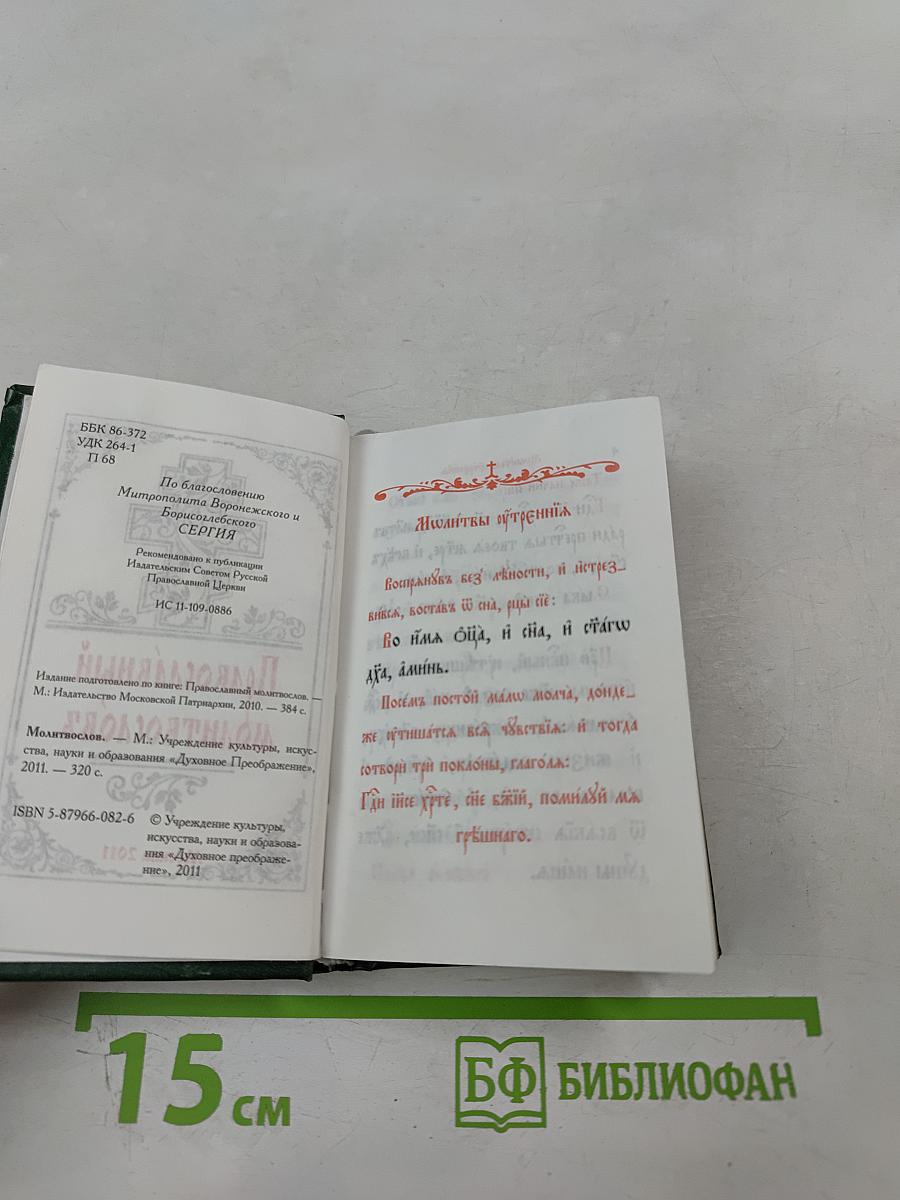 ББК 86-372
УДК 264-1
П 68
По благословению
Митрополита Воронежского и
Борисоглебского
СЕРГИЯ
Рекомендовано к публикации
Издательским Советом Русской
Православной Церкви
ИС 11-109-0886
Издание подготовлено по книге: Православный молитвослов. —
М.: Издательство Московской Патриархии, 2010. — 384 с.
Молитвослов. — М.: Учреждение культуры, искус-
ства, науки и образования «Духовное Преображение»,
2011. — 320 с.
ISBN 5-87966-082-6
© Учреждение культуры,
искусства, науки и образова-
ния «Духовное преображе-
ние», 2011
Мѡли́твы ᲂу҆́трєннїѧ
Воспрѧ́нꙋвъ без̾ лѣ́ности, и҆ и҆стрез_
ви́всѧ, воста́въ ѿ сна̀, рцы̀ сїѐ:
Во и҆́мѧ ѻ҆ц҃а̀, и҆ сн҃а, и҆ ст҃а́гѡ
дх҃а, а҆ми́нь.
Посе́мъ посто́й ма́лѡ мо́лча, до́нде_
же ᲂу҆тиша́тсѧ всѧ̑ чꙋ̑вствїѧ: и҆ тогда̀
сотворѝ трѝ покло́ны, глаго́лѧ:
Гдⷭ҇и і҆и҃се хрⷭ҇те́, сн҃е бж҃їй, поми́лꙋй мѧ̀
грѣ́шнаго.
15 см
БФ БИБЛИОФАН